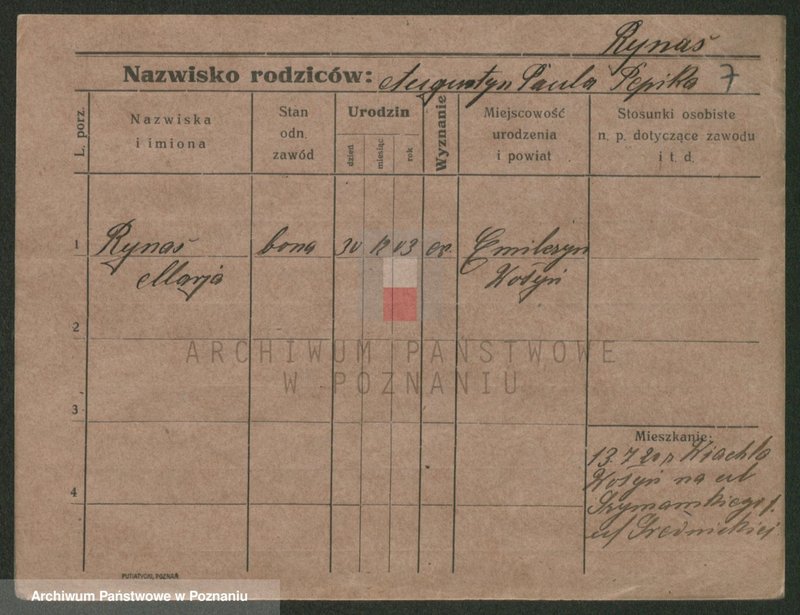 Rynaś
Nazwisko rodziców: Augustyn Paula Pepika 7
L. porz.
Nazwiska
i imiona
Stan
odn.
zawód
Urodzin
dzień
miesiąc
rok
Wyznanie
Miejscowość
urodzenia
i powiat
Stosunki osobiste
n. p. dotyczące zawodu
i t. d.
1 Rynaś bona 30 12 03
Marja
2
ARCHIWUM PAŃSTWOWE
W POZNANIU
3
Mieszkanie:
13. 7
na ul
4
Szymańskiego 1.
PUTIATYCKI, POZNAŃ
Archiwum Państwowe w Poznaniu